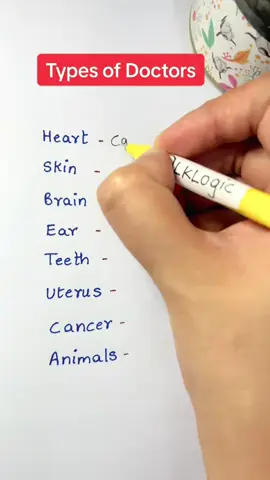 Types of Doctors
Heart - Ca
Skin -
Brain
Ear -
Teeth -
Uterus -
Cancer -
Animals -
LKLogic